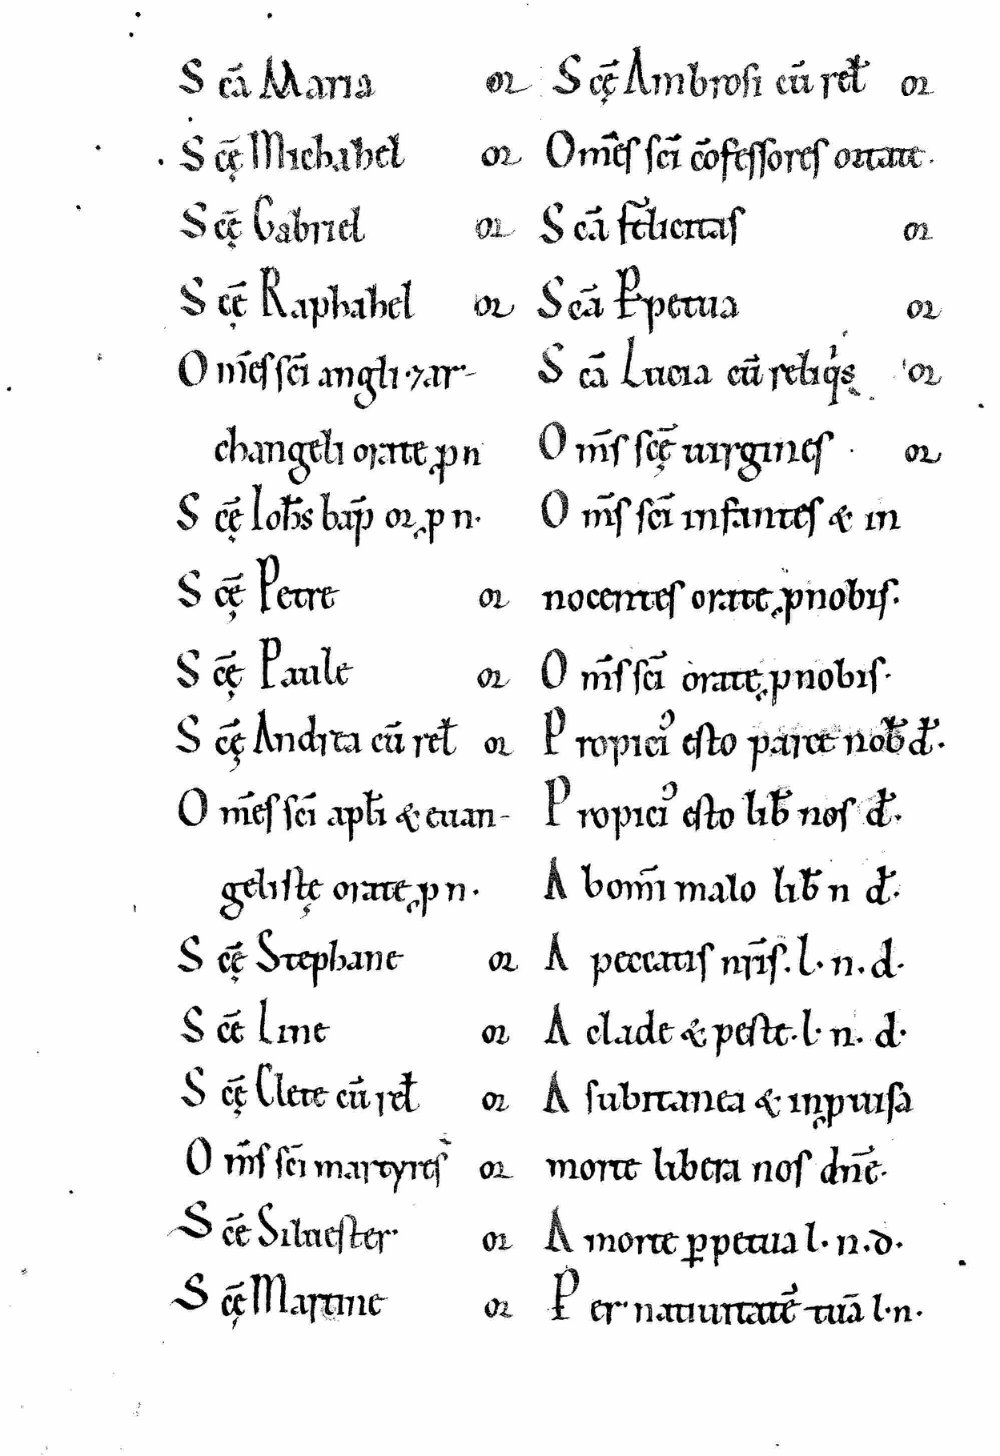 Scā Maria or
Scę̄ Michahel or
Scę̄ Gabriel or
Scę̄ Raphahel or
Om̄es sc̄i angli · ⁊ ar-
changeli orate p n
Scę̄ Ioħs bap̄ or p n·
Scę̄ Petre or
Scę̄ Paule or
Scę̄ Andrea cū reł or
Om̄es sc̄i apłi & euan-
gelistę orate p n·
Scę̄ Stephane or
Sc̄e Line or
Scę̄ Clete cū reł or
Om̄s sc̄i martyres or
Sc̄e Siluester· or
Scę̄ Martine or
Scę̄ Ambrosi cū reł or
Om̄es sc̄i cōfessores orate·
Scā felicitas or
Scā Perpetua or
Scā Lucia cū reliq's or
Om̄s scę̄ uirgines · or
Om̄s sc̄i infantes & in
nocentes orate p nobis·
Om̄s sc̄i orate p nobis·
Propici' esto parce nob̄ d̄·
Propici' esto lib̄ nos d̄·
Ab om̄i malo lib̄ n d̄·
A peccatis nr̄is · l · n · d·
A clade & peste · l · n · d·
A subitanea & inprouisa
morte libera nos dn̄e·
A morte ꝑpetua l · n · d·
Per natiuitatē tuā l · n ·